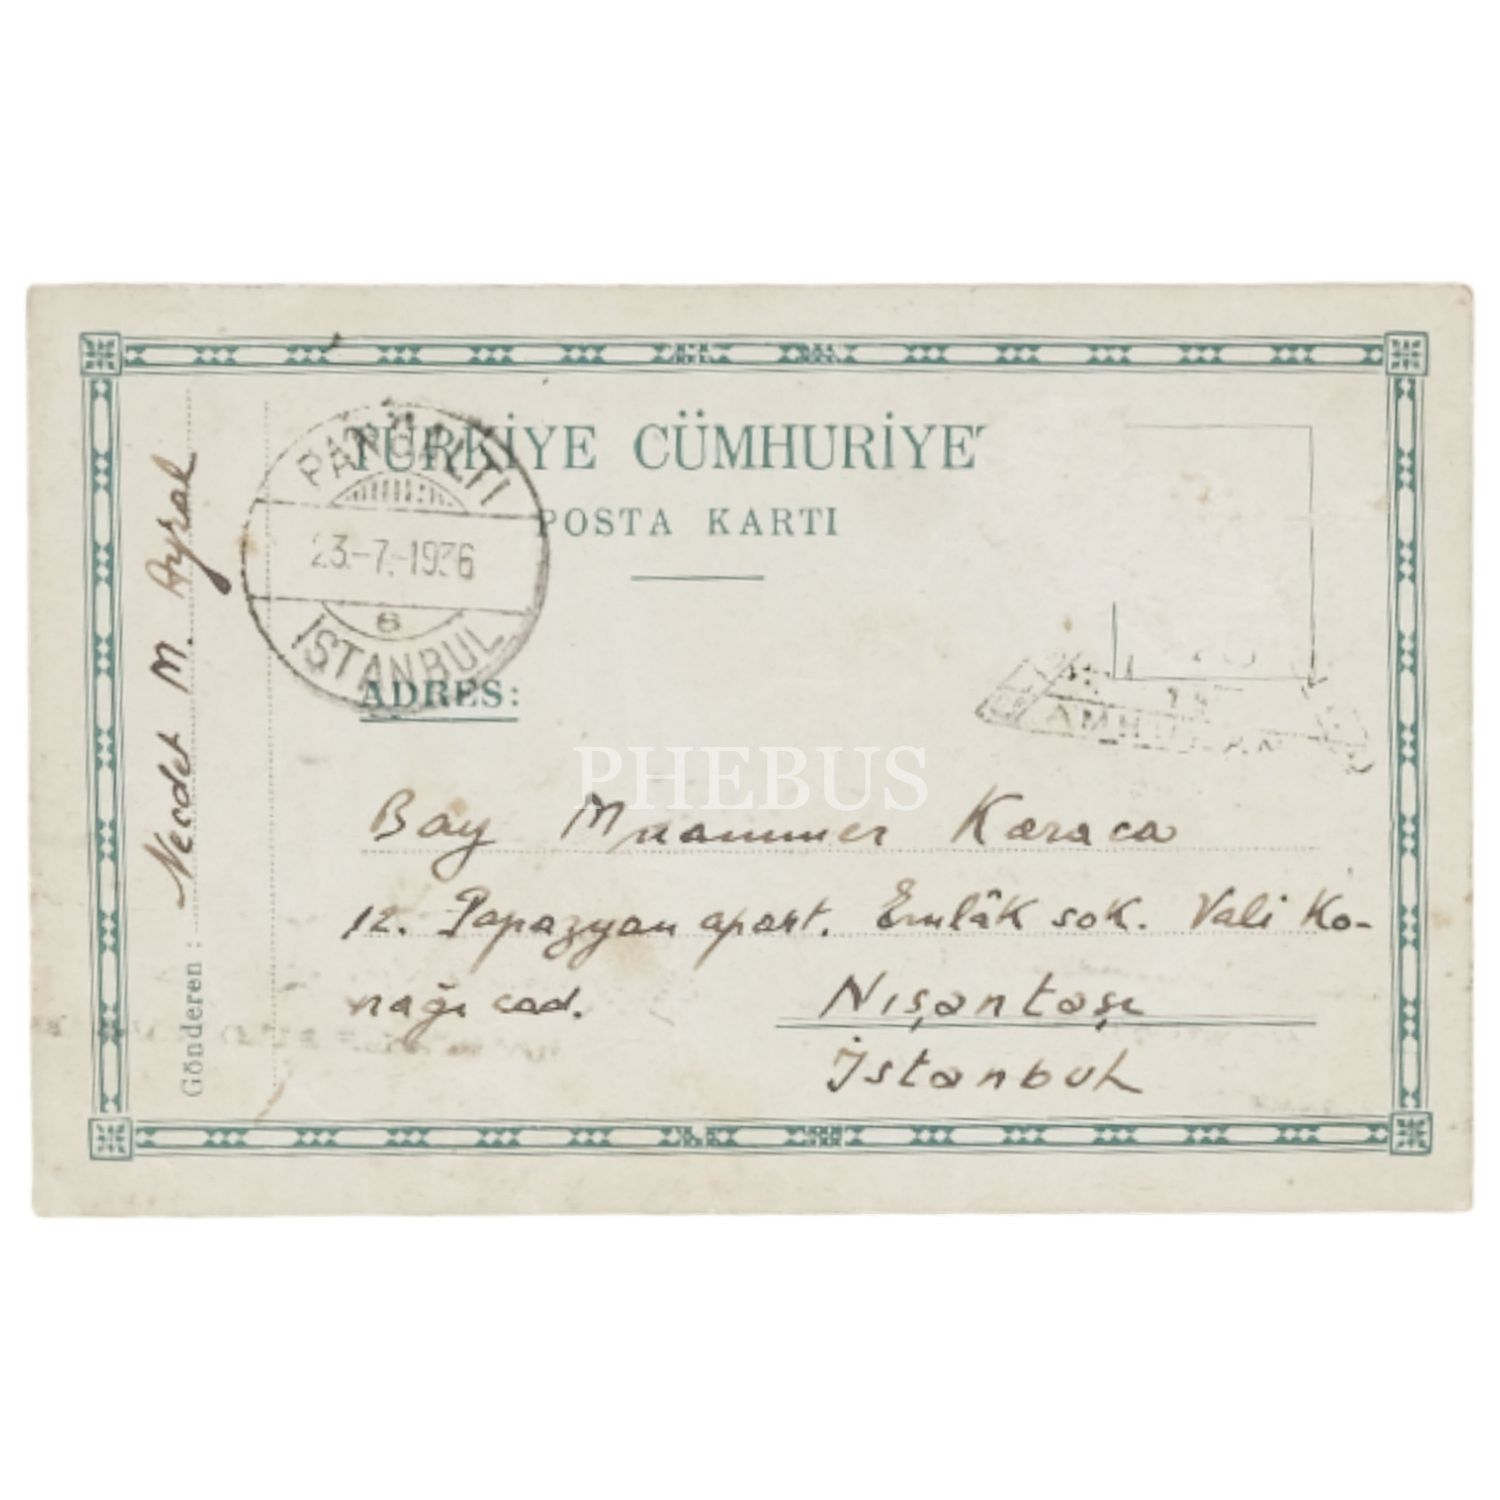 TÜRKİYE CÜMHURİYET
POSTA KARTI
PANGALTI
23.-7.-1936
6
İSTANBUL
ADRES:
PHEBUS
Bay Muammer Karaca
12. Papazyan apart. Emlâk sok. Vali Ko-
nağı cad. Nışantaşı
İstanbul
Gönderen : Necdet M. Ayral